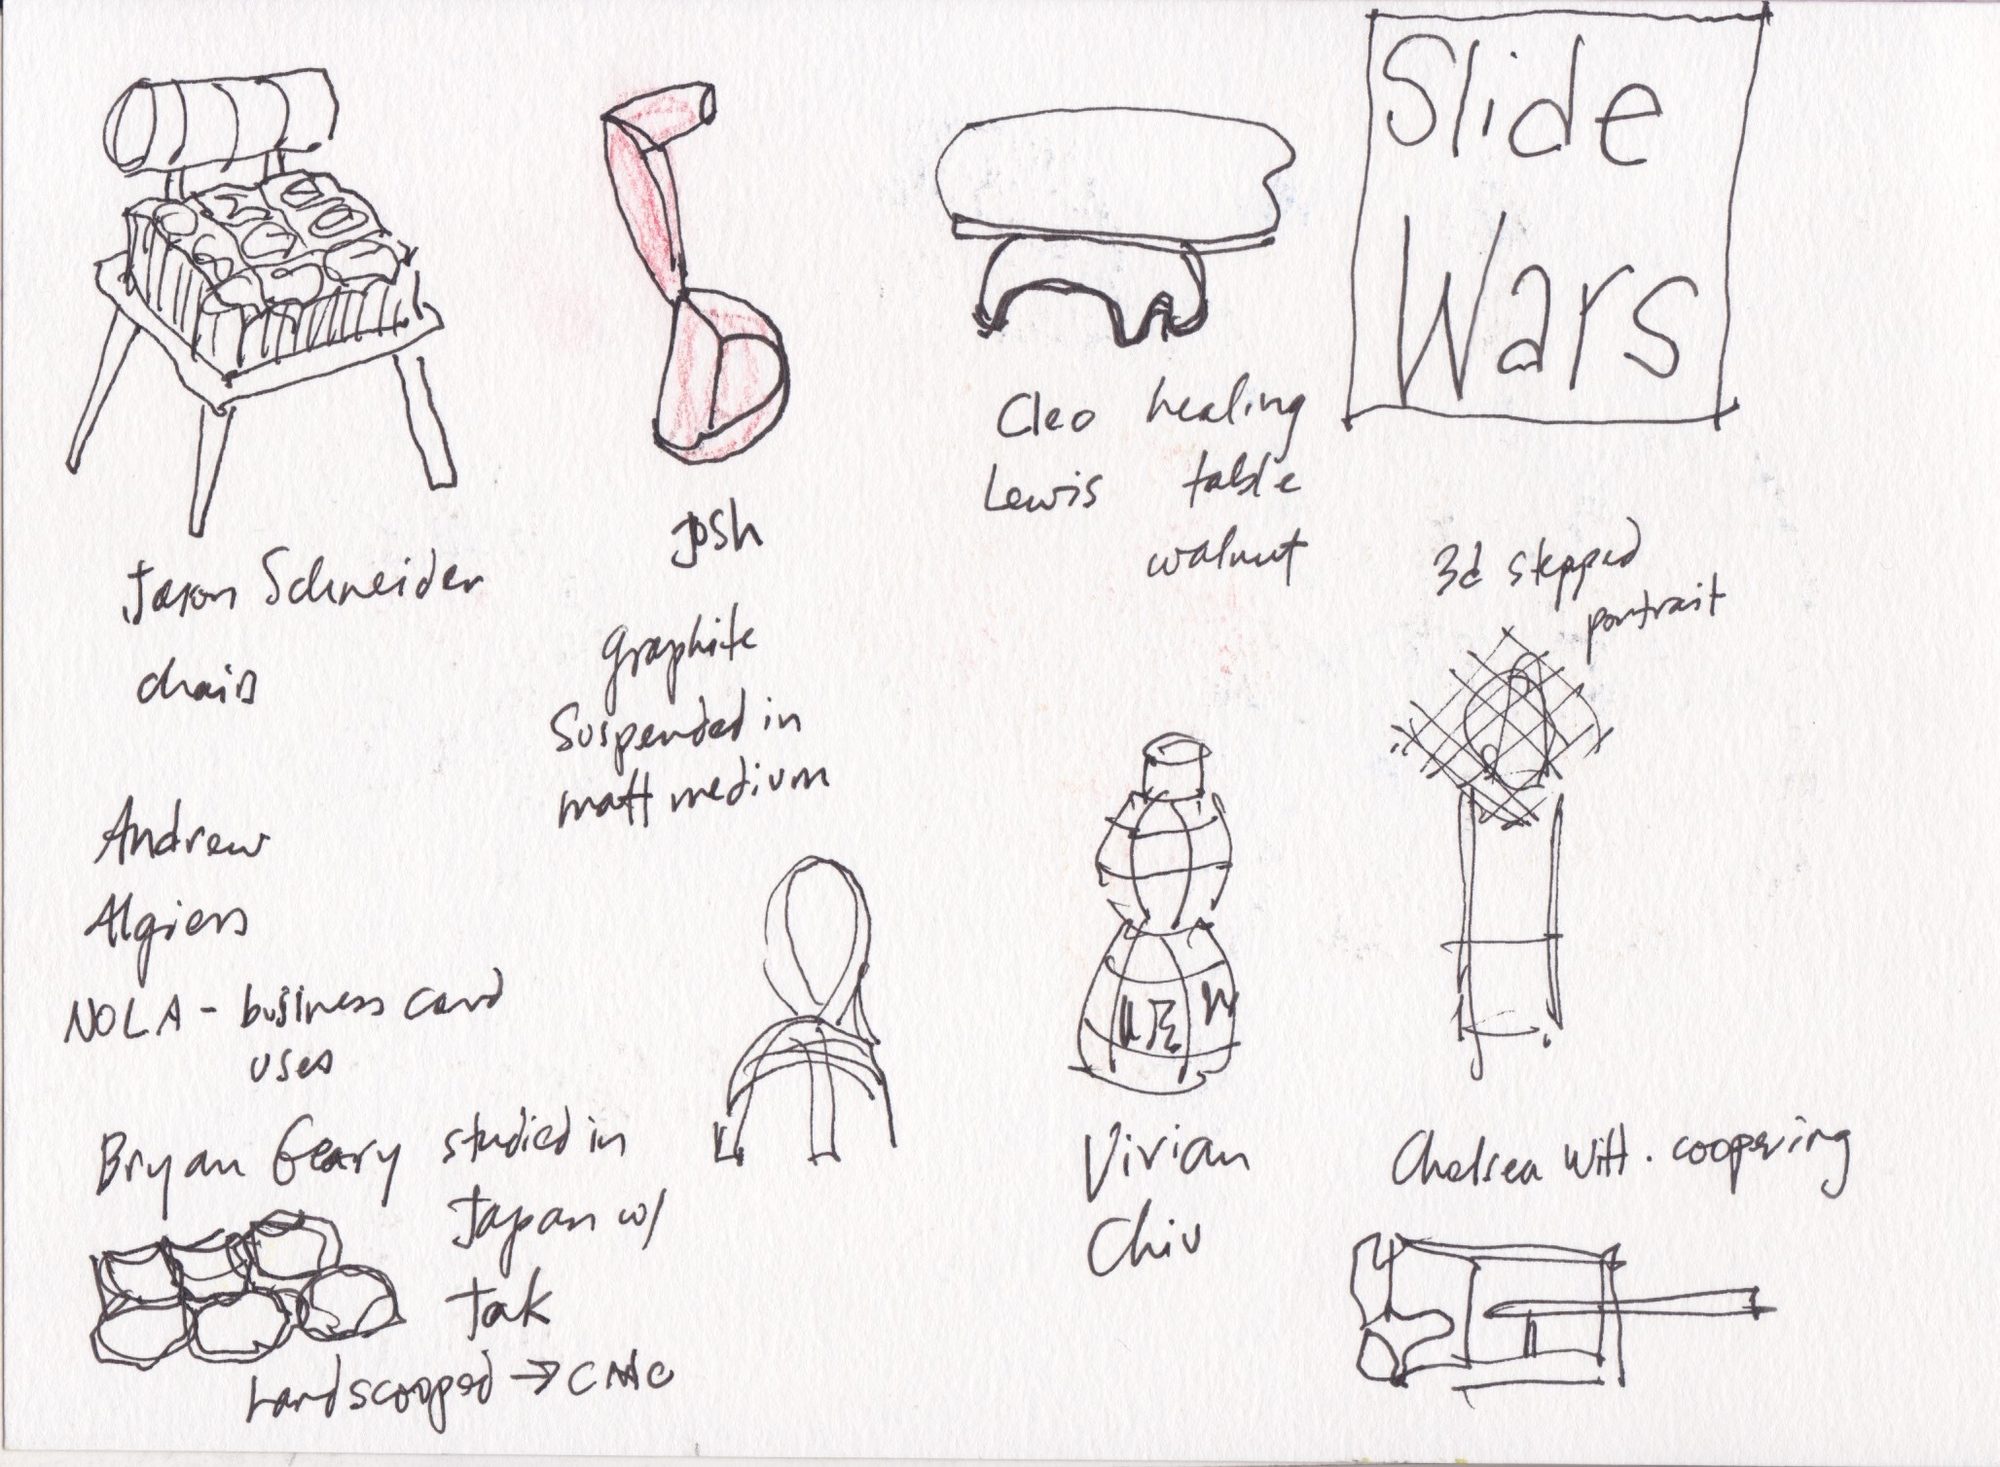 Slide
Wars
Jason Schneider
chair
Josh
graphite
Suspended in
matt medium
Cleo healing
Lewis table
walnut
3d stepped
portrait
Andrew
Algiers
NOLA - business card
uses
Bryan Geary studied in
Japan w/
Tak
handscooped → CNC
Vivian
Chiu
Chelsea Witt. coopering